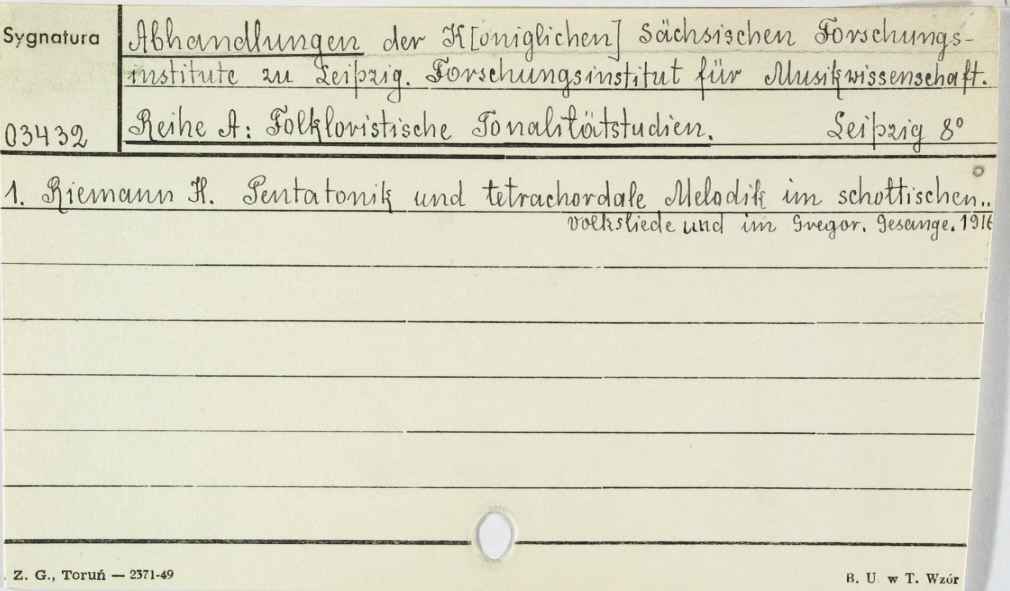 Sygnatura
03432
Abhandlungen der K[öniglichen] Sächsischen Forschungs-
institute zu Leipzig. Forschungsinstitut für Musikwissenschaft.
Reihe A: Folkloristische Tonalitätstudien. Leipzig 8°
1. Riemann H. Pentatonik und tetrachordale Melodik im schottischen..
Volksliede und im Gregor. Gesange. 1916
Z. G., Toruń — 2371-49
B. U. w T. Wzór